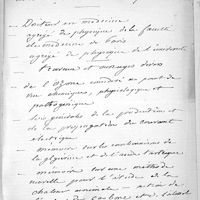 Docteur en médecine
agrégé de physique de la faculté
de médecine de Paris
agrégé de physique de l'université
Travaux et ouvrages divers
— de l'Ozone considéré au point de
vue chimique, physiologique et
pathogénique
Les principes de la production et
de la propagation du courant
électrique
— mémoire sur les combinaisons de
la glycérine et de l'acide tartrique
— mémoire sur une méthode
nouvelle pour l'étude de la
chaleur animale — action de